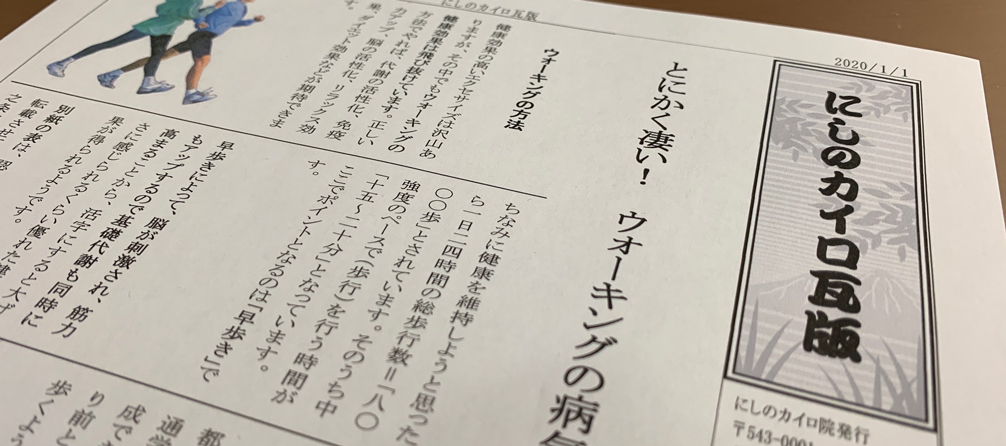 にしのカイロ瓦版
2020/1/1
にしのカイロ瓦版
にしのカイロ院発行
とにかく凄い！　ウォーキングの病
ウォーキングの方法
健康効果の高いエクササイズは沢山あ
りますが、その中でもウォーキングの
健康効果は飛び抜けています。正しい
方法でやれば、代謝の活性化、免疫
力アップ、脳の活性化、リラックス効
果、ダイエット効果などが期待できま
す。
ちなみに健康を維持しようと思った
ら一日二四時間の総歩行数＝「八〇
〇〇歩」とされています。そのうち中
強度のペースで（歩行）を行う時間が
「十五～二十分」となっています。
ここでポイントとなるのは「早歩き」で
す。
早歩きによって、脳が刺激され、筋力
もアップするので基礎代謝も同時に
高まることから、活字にすると大げ
さに感じられるくらい優れた
果が得られるようです。
別紙の表は、
転載させ
都
通学
成で
り前と
歩くよう